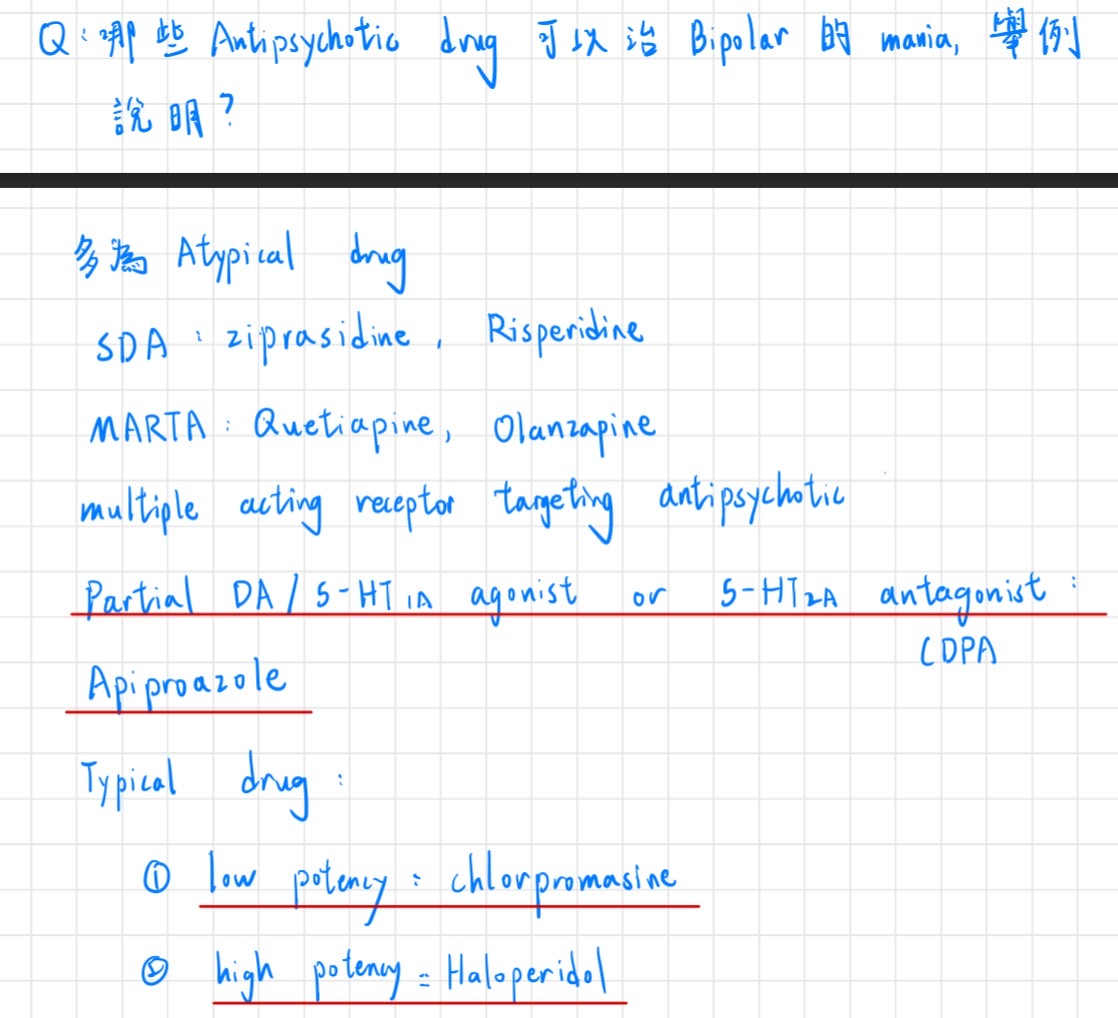 Q：哪些 Antipsychotic drug 可以治 Bipolar 的 mania, 舉例
說明？
多為 Atypical drug
SDA：ziprasidine, Risperidine
MARTA：Quetiapine, Olanzapine
multiple acting receptor targeting antipsychotic
Partial DA / 5-HT1A agonist or 5-HT2A antagonist：
(DPA
Apiproazole
Typical drug：
① low potency：chlorpromasine
② high potency：Haloperidol